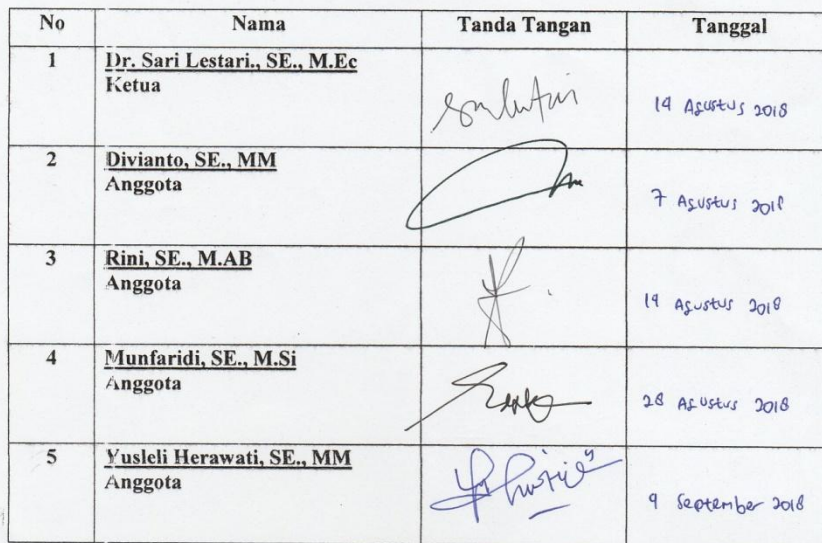 No Nama Tanda Tangan Tanggal
1 Dr. Sari Lestari., SE., M.Ec
Ketua
14 Agustus 2018
2 Divianto, SE., MM
Anggota
7 Agustus 2018
3 Rini, SE., M.AB
Anggota
Agustus 2018
4 Munfaridi, SE., M.Si
Anggota
28 Agustus 2018
5 Yusleli Herawati, SE., MM
Anggota
9 September 2018